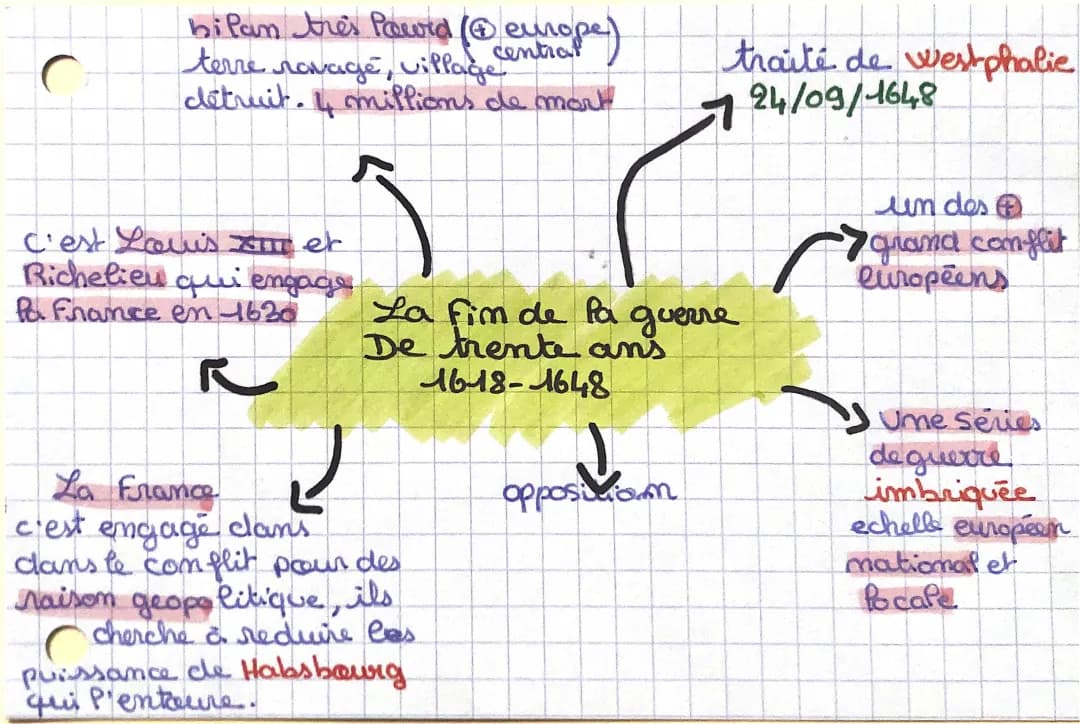 bilan très lourd (⊕ europe central)
terre ravagé, village
détruit. 4 millions de mort
traité de Westphalie
24/09/1648
un des ⊕
grand conflit
européens
c'est Louis XIII et
Richelieu qui engage
la France en 1630
La fin de la guerre
De trente ans
1618-1648
Une séries
de guerre
imbriquée
echelle européen
national et
locale
opposition
La France
c'est engagé dans
dans le conflit pour des
raison geopolitique, ils
cherche à reduire les
puissance de Habsbourg
qui l'entoure.